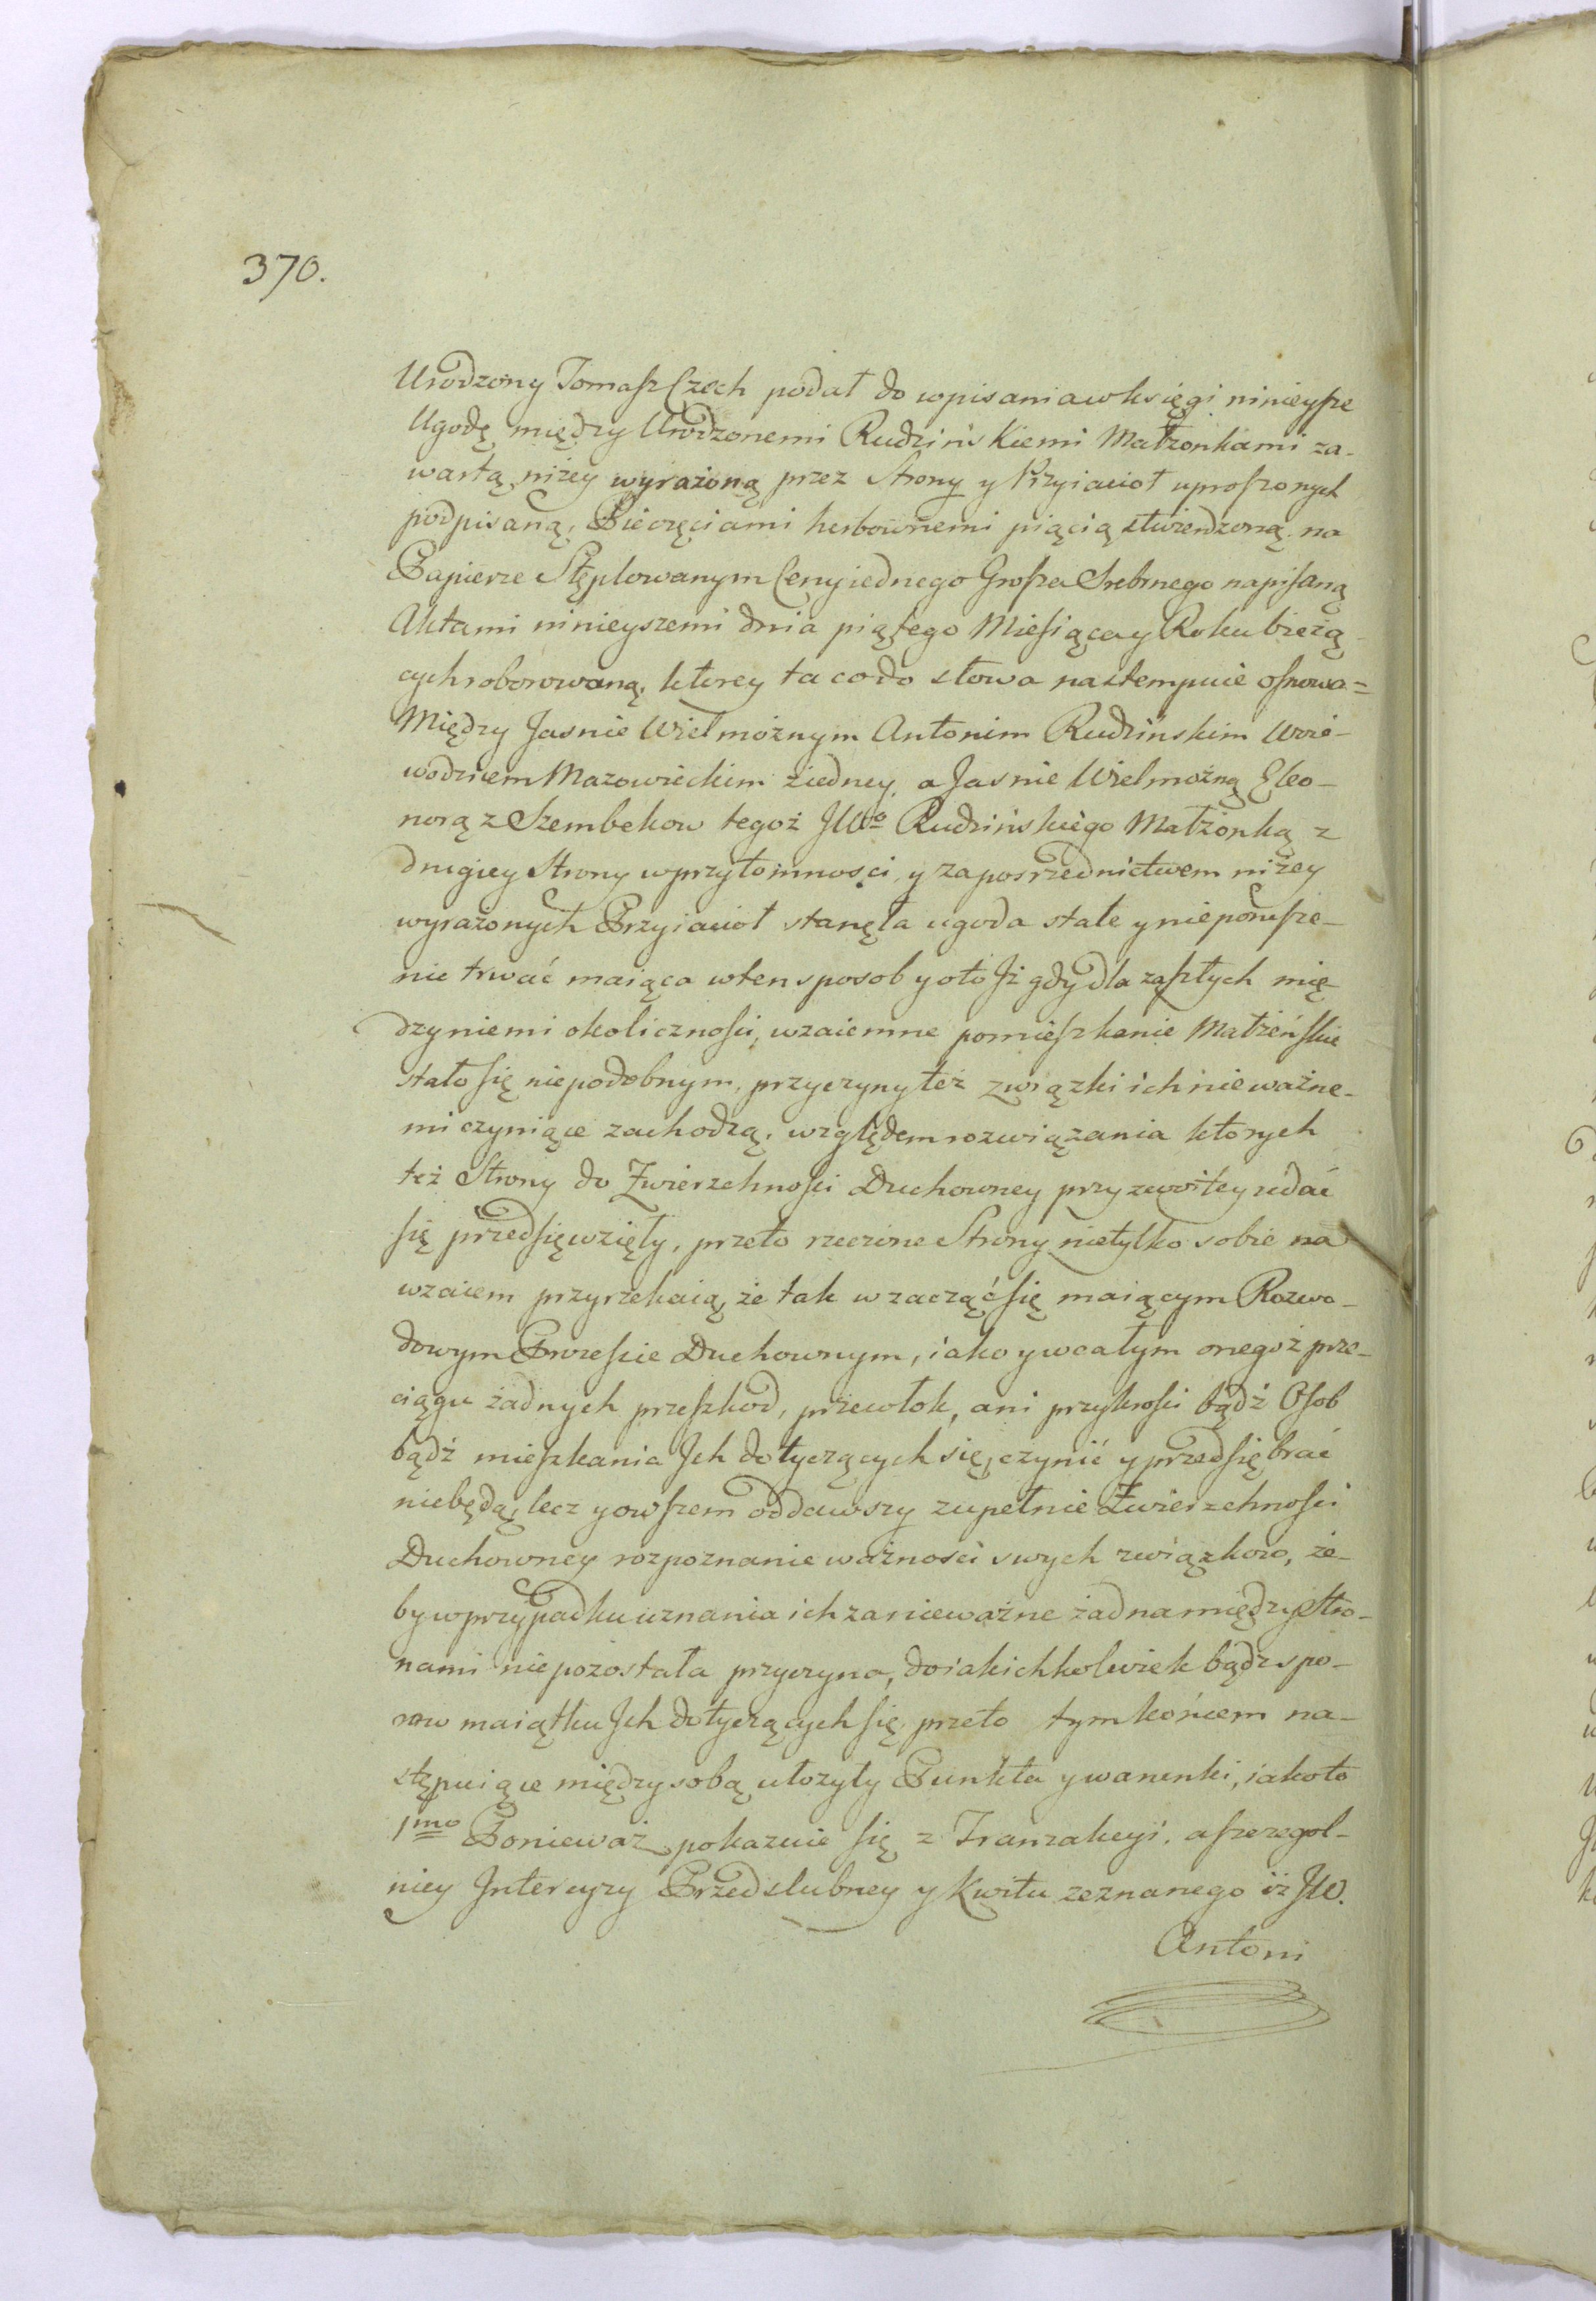 370.
Urodzony Tomasz Czech podał do wpisania w księgi ninieysze
Ugodę między Urodzonemi Rudzińskiemi Małżonkami za-
wartą niżey wyrażoną przez Strony y Przyiacioł uproszonych
podpisaną, Pieczęciami herbownemi piącią stwierdzoną na
Papierze Stęplowanym Ceny iednego Grosza Srebrnego napisaną
Aktami ninieyszemi dnia piątego Miesiąca y Roku bieżą-
cych roborowaną, ktorey ta co do słowa nastempuie osnowa=
Między Jasnie Wielmożnym Antonim Rudzińskim Woie-
wodzicem Mazowieckim z iedney, a Jasnie Wielmożną Eleo-
norą z Szembekow tegoż JWo Rudzińskiego Małżonką z
drugiey Strony w przytomności y za posrzednictwem niżey
wyrażonych Przyiacioł stanęła ugoda stale y nieporusze-
nie trwać maiąca w ten sposob y oto Jż gdy dla zaszłych mię-
dzy niemi okoliczności, wzaiemne pomieszkanie Małżeńskie
stało się niepodobnym, przyczyny też związki ich nieważne-
mi czyniące zachodzą, względem rozwiązania ktorych
też Strony do Zwierzchności Duchowney przyzwoitey udać
się przedsięwzięły, przeto rzeczone Strony nietylko sobie na
wzaiem przyrzekaią, że tak w zacząć się maiącym Rozwo-
dowym Processie Duchownym, iako y w całym onegoż prze-
ciągu żadnych przeszkod, przewłok, ani przykrości bądź Osob
bądź mieszkania Jch dotyczących się, czynić y przedsiębrać
niebędą, lecz y owszem oddawszy zupełnie Zwierzchności
Duchowney rozpoznanie ważności swych związkow, że-
by w przypadku uznania ich za nieważne żadna między Stro-
nami niepozostała przyczyna, do iakichkolwiek bądz spo-
row maiątku Jch dotyczących się, przeto tym końcem na-
stępuiące między sobą ułożyły Punkta y warunki, iako to
1mo Ponieważ pokazuie się z Tranzakcyi, a szczegol-
niey Intercyzy Przedslubney y Kwitu zeznanego iż JW.
Antoni